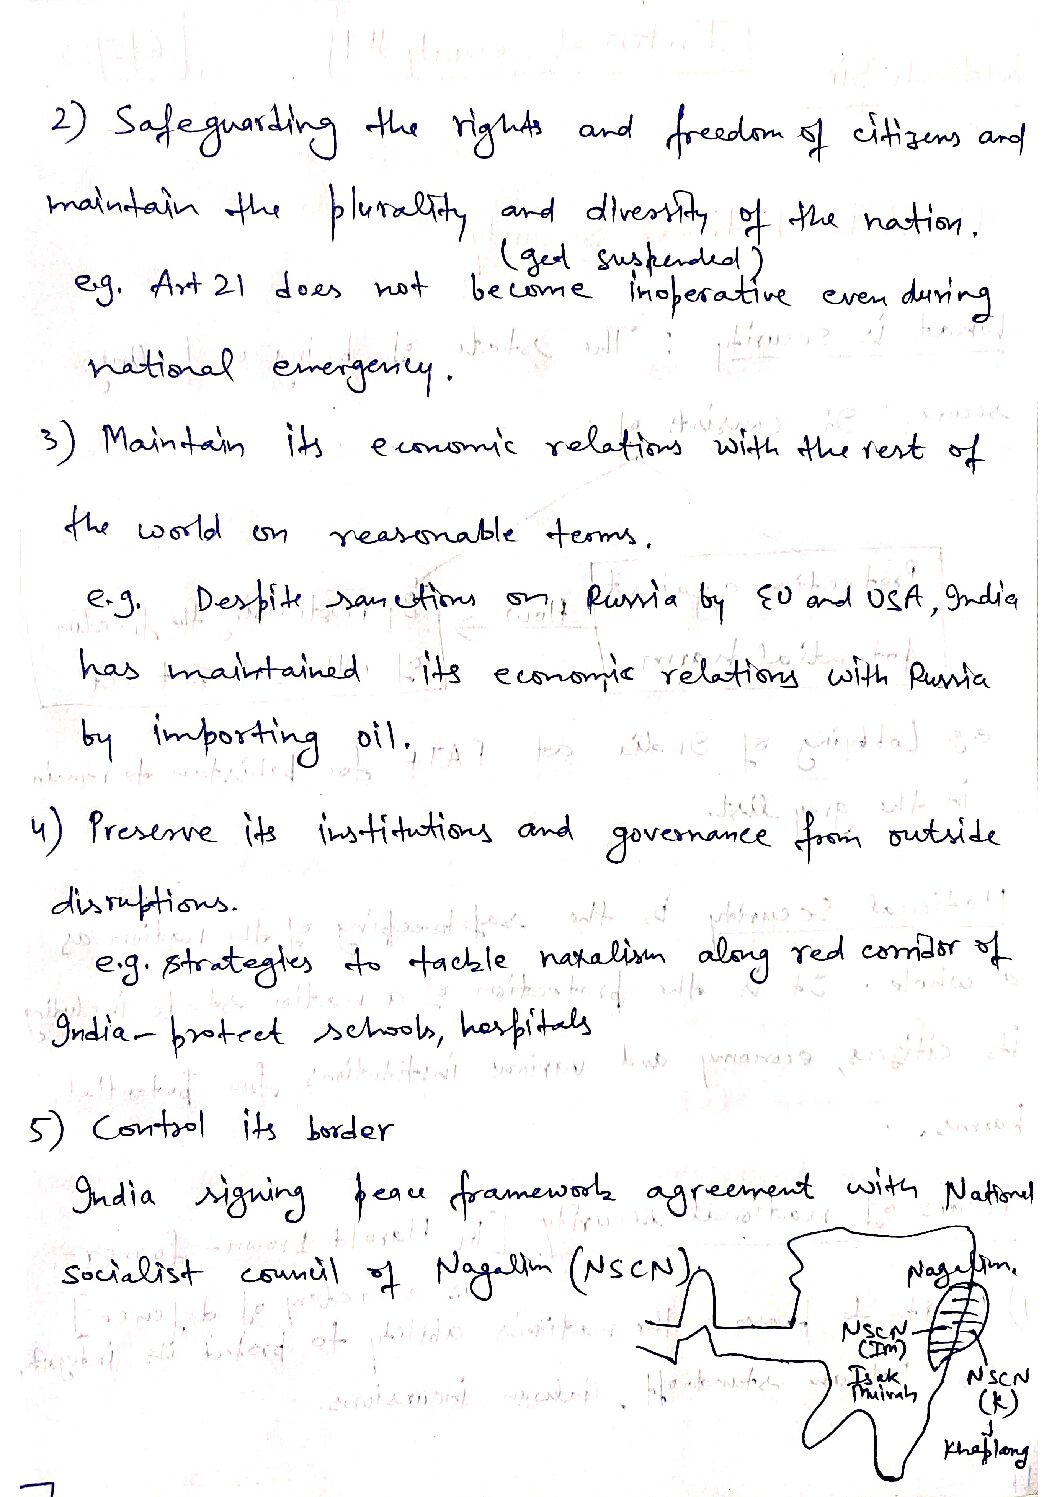 2) Safeguarding the rights and freedom of citizens and
maintain the plurality and diversity of the nation.
(get suspended)
e.g. Art 21 does not become inoperative even during
national emergency.
3) Maintain its economic relations with the rest of
the world on reasonable terms.
e.g. Despite sanctions on Russia by EU and USA, India
has maintained its economic relations with Russia
by importing oil.
4) Preserve its institutions and governance from outside
disruptions.
e.g. strategies to tackle naxalism along red corridor of
India - protect schools, hospitals
5) Control its border
India signing peace framework agreement with National
socialist council of Nagalim (NSCN)
Nagalim.
NSCN
(IM)
Isak
Muivah
NSCN
(K)
Khaplang